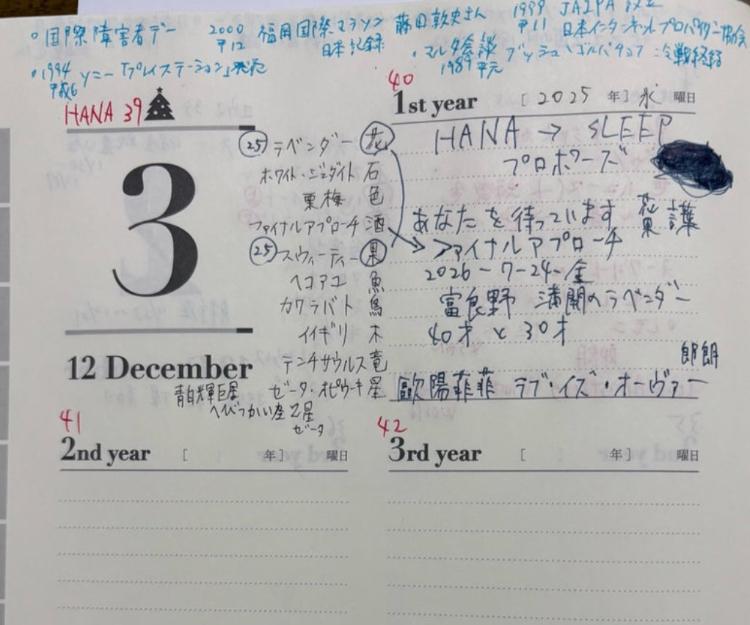 ・国際障害者デー 2000 平12 福岡国際マラソン 日本記録 藤田敦史さん 1999 平11 JAIPA 設立 日本インターネットプロバイダー協会
・1994 平成6 ソニー「プレイステーション」発売
・マルタ会談 1989 平元 ブッシュ ゴルバチョフ 冷戦終結
HANA 39
3
12 December
25 ラベンダー 花
ホワイト・ジェダイト 石
栗梅 色
ファイナルアプローチ 酒
25 スウィーティー 果
ヘコアユ 魚
カワラバト 鳥
イイギリ 木
テンチサウルス 竜
ゼータ・オピウーキ 星
青白輝巨星
へびつかい座ζ星
ゼータ
40
1st year [2025 年] 水 曜日
HANA → SLEEP
プロポワーズ
あなたを待っています 花 果 護
ファイナルアプローチ
2026-7-24-金
富良野 満開のラベンダー
40才と30才
郎朗
歐陽菲菲 ラブ・イズ・オーヴァー
41
2nd year [ 年] 曜日
42
3rd year [ 年] 曜日